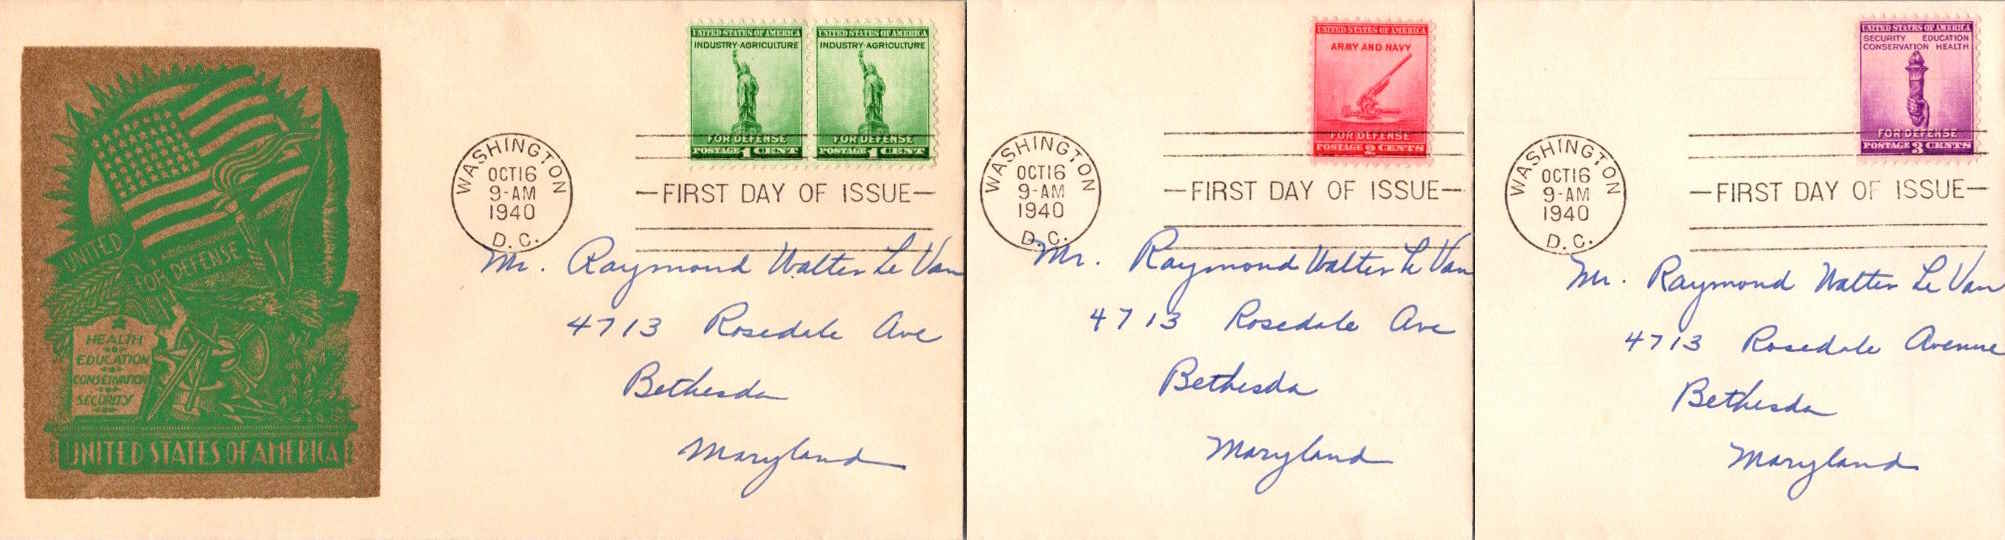 UNITED
FOR DEFENSE
HEALTH
EDUCATION
CONSERVATION
SECURITY
UNITED STATES OF AMERICA
UNITED STATES OF AMERICA
INDUSTRY·AGRICULTURE
FOR DEFENSE
POSTAGE 1 CENT
UNITED STATES OF AMERICA
INDUSTRY·AGRICULTURE
FOR DEFENSE
POSTAGE 1 CENT
WASHINGTON
OCT16
9-AM
1940
D.C.
—FIRST DAY OF ISSUE—
Mr. Raymond Walter Le Van
4713 Rosedale Ave
Bethesda
Maryland
UNITED STATES OF AMERICA
ARMY AND NAVY
FOR DEFENSE
POSTAGE 2 CENTS
WASHINGTON
OCT16
9-AM
1940
D.C.
—FIRST DAY OF ISSUE—
Mr. Raymond Walter Le Van
4713 Rosedale Ave
Bethesda
Maryland
UNITED STATES OF AMERICA
SECURITY EDUCATION
CONSERVATION HEALTH
FOR DEFENSE
POSTAGE 3 CENTS
WASHINGTON
OCT16
9-AM
1940
D.C.
—FIRST DAY OF ISSUE—
Mr. Raymond Walter Le Van
4713 Rosedale Avenue
Bethesda
Maryland